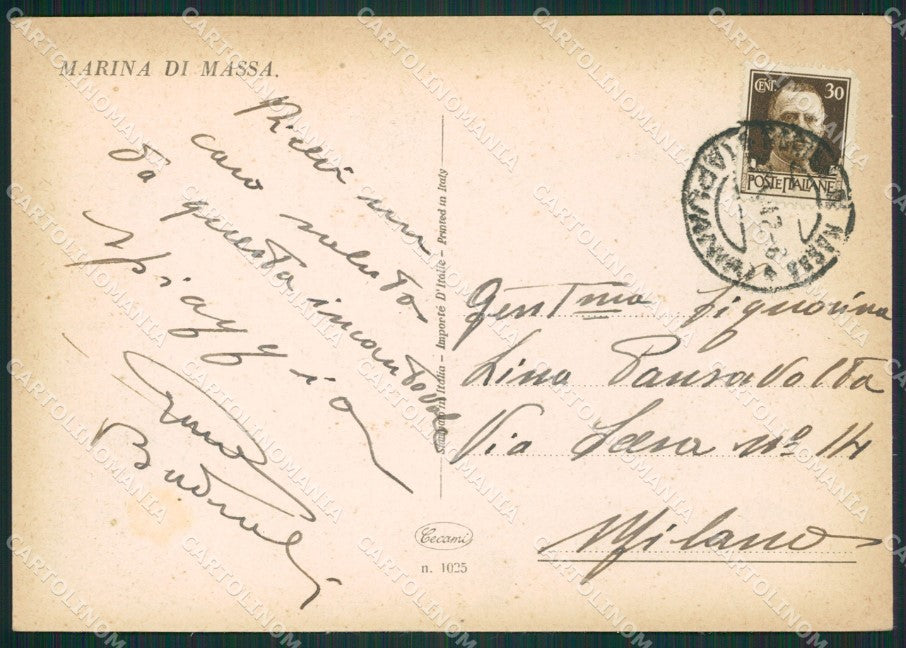 MARINA DI MASSA.
Ricevi un
caro saluto
da questa incantevole
spiaggia
CENT. 30
POSTE ITALIANE
MASSA
Stampato in Italia - Importé D'Italie - Printed in Italy
Gent.ma Signorina
Lina Pansavolta
Via Sacra nº 14
Milano
Cecami
n. 1025
CARTOLINOMANIA